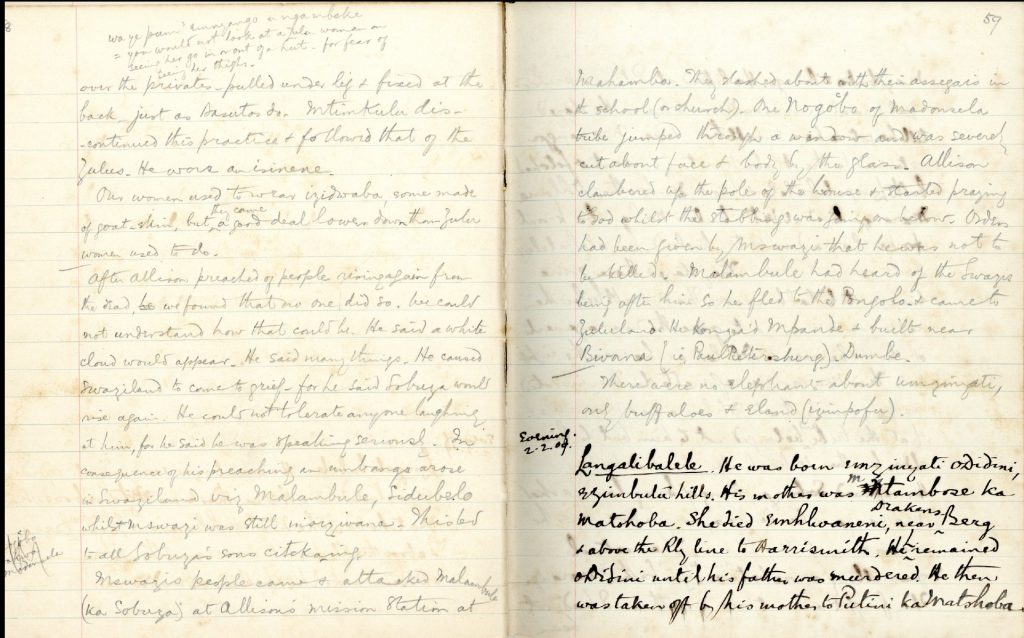 8
waye pam' emnyango ungambeke
= you would not look at a zulu woman on
seeing her go in or out of a hut - for fear of
seeing her thighs.
over the privates - pulled under leg & fixed at the
back - just as Basutos do. Mtimkulu dis-
-continued this practice & followed that of the
Zulus. He wore an isinene.
Our women used to wear izidwaba, some made
of goat-skin, but they came a good deal lower down than Zulu
women used to do.
After Allison preached of people rising again from
the dead, we found that no one did so. We could
not understand how that could be. He said a white
cloud would appear. He said many things. He caused
Swaziland to come to grief - for he said Sobuza would
rise again. He could not tolerate anyone laughing
at him, for he said he was speaking seriously. In
consequence of his preaching an umbango arose
in Swaziland viz Malambule, Sidubelo
whilst Mswazi was still insizwana. This led
to all Sobuza's sons citekaing.
Mswazi's people came & attacked Malambule
(ka Sobuza) at Allison's mission station at
59
Mahamba. They dashed about with their assegais in
the school (or church). One Nogoba of Madonsela
tribe jumped through a window and was severely
cut about face & body by the glass. Allison
clambered up the pole of the house & started praying
to God whilst the stabbing was going on below. Orders
had been given by Mswazi that he was not to
be killed. Malambule had heard of the Swazis
being after him so he fled to the Pongolo & came to
Zululand. He konza'd Mpande & built near
Bivana (ie PaulPietersburg). Dumbe.
There were no elephants about umzinyati,
only buffaloes & eland (izimpofu).
Evening.
2.2.09.
Langalibalele. He was born emzinyati oDidini,
ezimbutu hills. His mother was Mtambose ka
Matshoba. She died Emhlwaneni, near Drakensberg
& above the Rly line to Harrismith. He remained
oDidini until his father was murdered. He then
was taken off by his mother to Putini ka Matshoba.